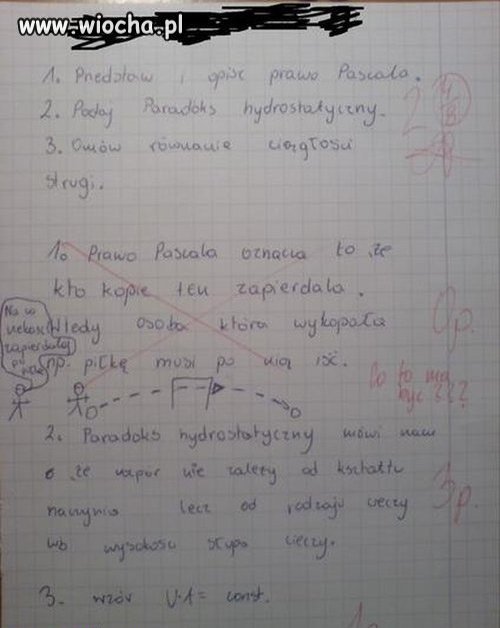 www.wiocha.pl
1. Przedstaw i opisz prawo Pascala.
2. Podaj Paradoks hydrostatyczny.
3. Omów równanie ciągłości
strugi.
1. Prawo Pascala oznacza to że
kto kopie ten zapierdala.
Wtedy osoba która wykopała
np. piłkę musi po nią iść.
Na co
czekasz
zapierdalaj
po nią
0p.
Co to ma
być ???
2. Paradoks hydrostatyczny mówi nam
o że napór nie zależy od kształtu
naczynia lecz od rodzaju cieczy
wysokości słupa cieczy.
3p.
3. wzór V·A = const.